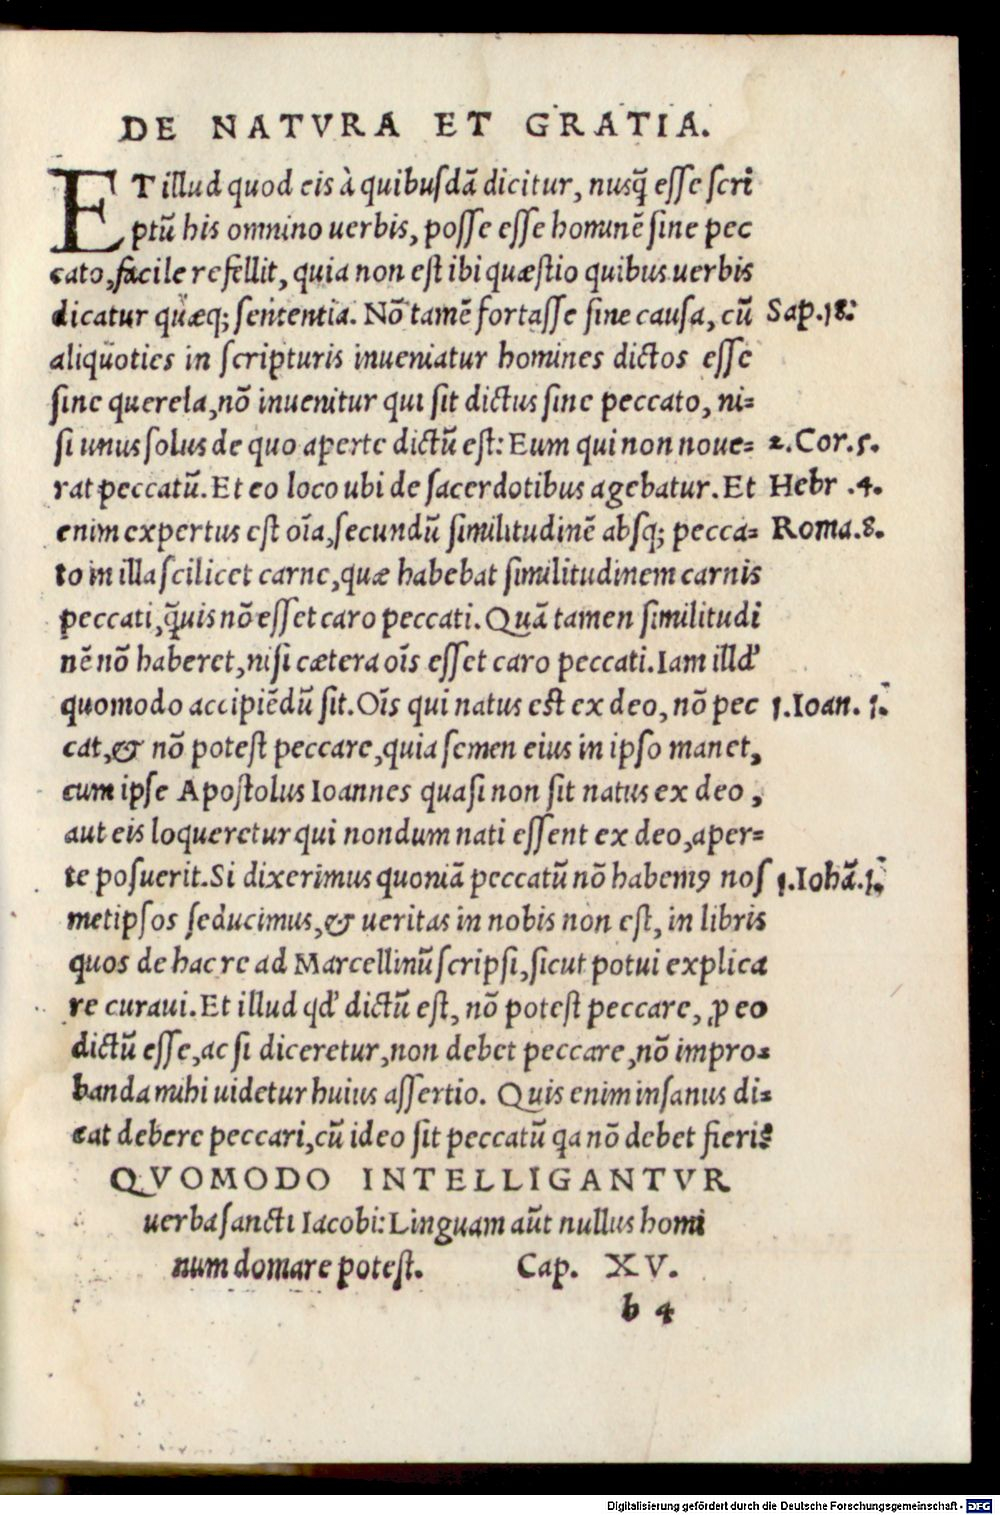 DE NATVRA ET GRATIA.
ET illud quod eis à quibusdã dicitur, nusq̃ esse scri
ptũ his omnino uerbis, posse esse hominẽ sine pec
cato, facile refellit, quia non est ibi quæstio quibus uerbis
dicatur quæq; sententia. Nõ tamẽ fortasse sine causa, cũ Sap. 18.
aliquoties in scripturis inueniatur homines dictos esse
sine querela, nõ inuenitur qui sit dictus sine peccato, ni=
si unus solus de quo aperte dictũ est: Eum qui non noue= 2. Cor. 5.
rat peccatũ. Et eo loco ubi de sacerdotibus agebatur. Et Hebr. 4.
enim expertus est oĩa, secundũ similitudinẽ absq; pecca= Roma. 8.
to in illa scilicet carne, quæ habebat similitudinem carnis
peccati, q̃uis nõ esset caro peccati. Quã tamen similitudi
nẽ nõ haberet, nisi cætera oĩs esset caro peccati. Iam illd'
quomodo accipiẽdũ sit. Oĩs qui natus est ex deo, nõ pec 1. Ioan. 1.
cat, & nõ potest peccare, quia semen eius in ipso manet,
cum ipse Apostolus Ioannes quasi non sit natus ex deo,
aut eis loqueretur qui nondum nati essent ex deo, aper=
te posuerit. Si dixerimus quoniã peccatũ nõ habemꝰ nos 1. Iohã. 1.
metipsos seducimus, & ueritas in nobis non est, in libris
quos de hac re ad Marcellinũ scripsi, sicut potui explica
re curaui. Et illud qd' dictũ est, nõ potest peccare, ꝓ eo
dictũ esse, ac si diceretur, non debet peccare, nõ impro=
banda mihi uidetur huius assertio. Quis enim insanus di=
cat debere peccari, cũ ideo sit peccatũ qa nõ debet fieri?
QVOMODO INTELLIGANTVR
uerba sancti Iacobi: Linguam aũt nullus homi
num domare potest. Cap. XV.
b 4
Digitalisierung gefördert durch die Deutsche Forschungsgemeinschaft - DFG